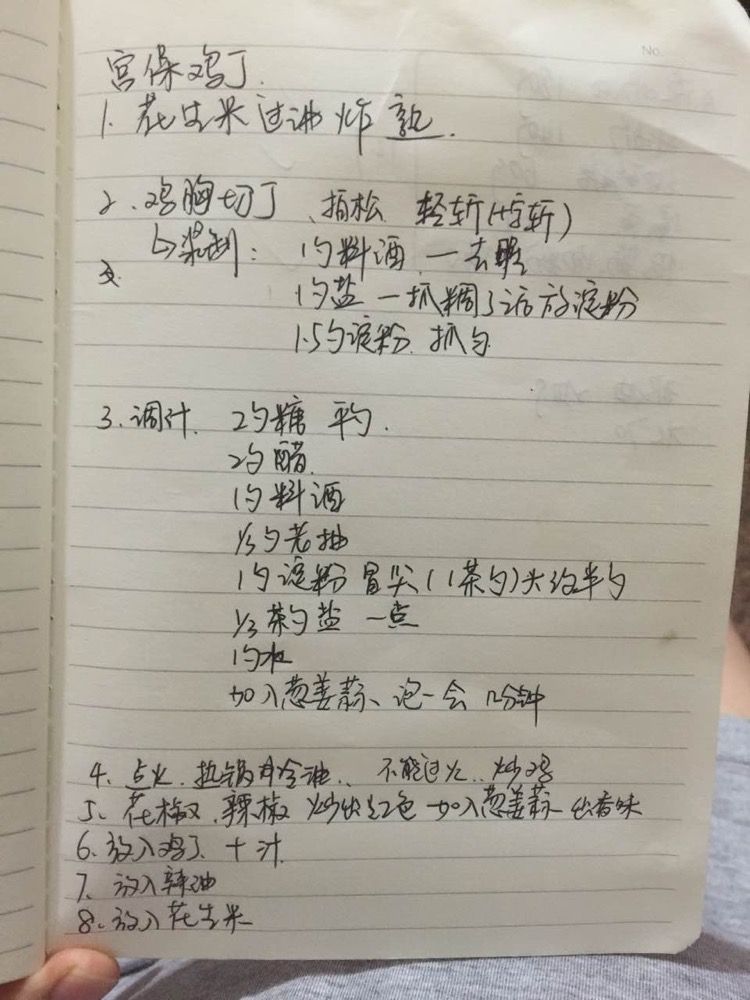 No.
宫保鸡丁.
1. 花生米过油炸熟.
2. 鸡胸切丁、拍松 轻斩(十字斩)
↳浆制: 1勺料酒 一去腥
1勺盐 一抓糊了后放淀粉
1.5勺淀粉. 抓匀.
3. 调汁. 2勺糖 平勺.
2勺醋.
1勺料酒
1/3勺老抽
1勺淀粉 冒尖(1茶勺)大约半勺
1/3茶勺盐 一点
1勺水
加入葱姜蒜、泡一会 几分钟
4. 点火. 热锅用冷油、不能过火..炒鸡
5、花椒、辣椒 炒出红色 加入葱姜蒜 出香味
6、放入鸡丁 + 汁.
7. 放入辣油
8、放入花生米